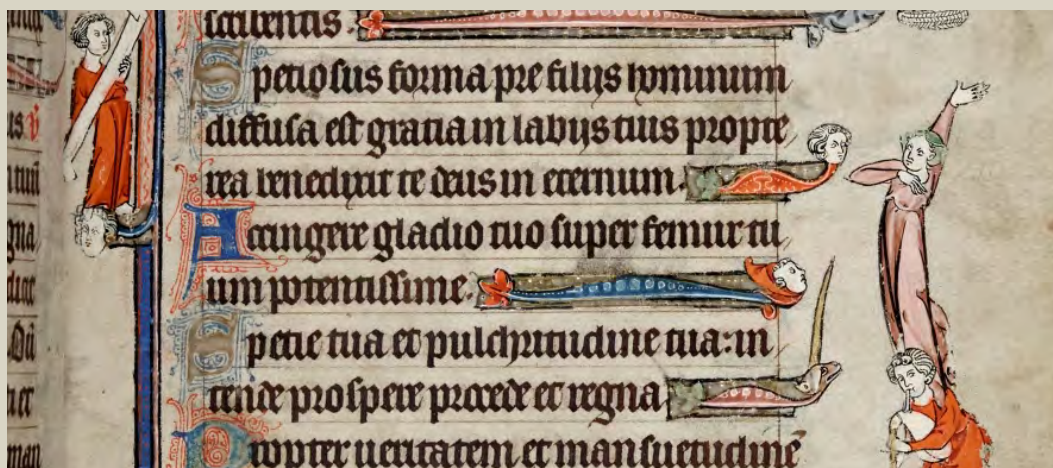 scribentis.
Speciosus forma pre filijs hominum
diffusa est gratia in labijs tuis propte
rea benedixit te deus in eternum.
Accingere gladio tuo super femur tu
um potentissime.
Specie tua et pulchritudine tua: in
tende prospere procede et regna
Propter ueritatem et mansuetudinē